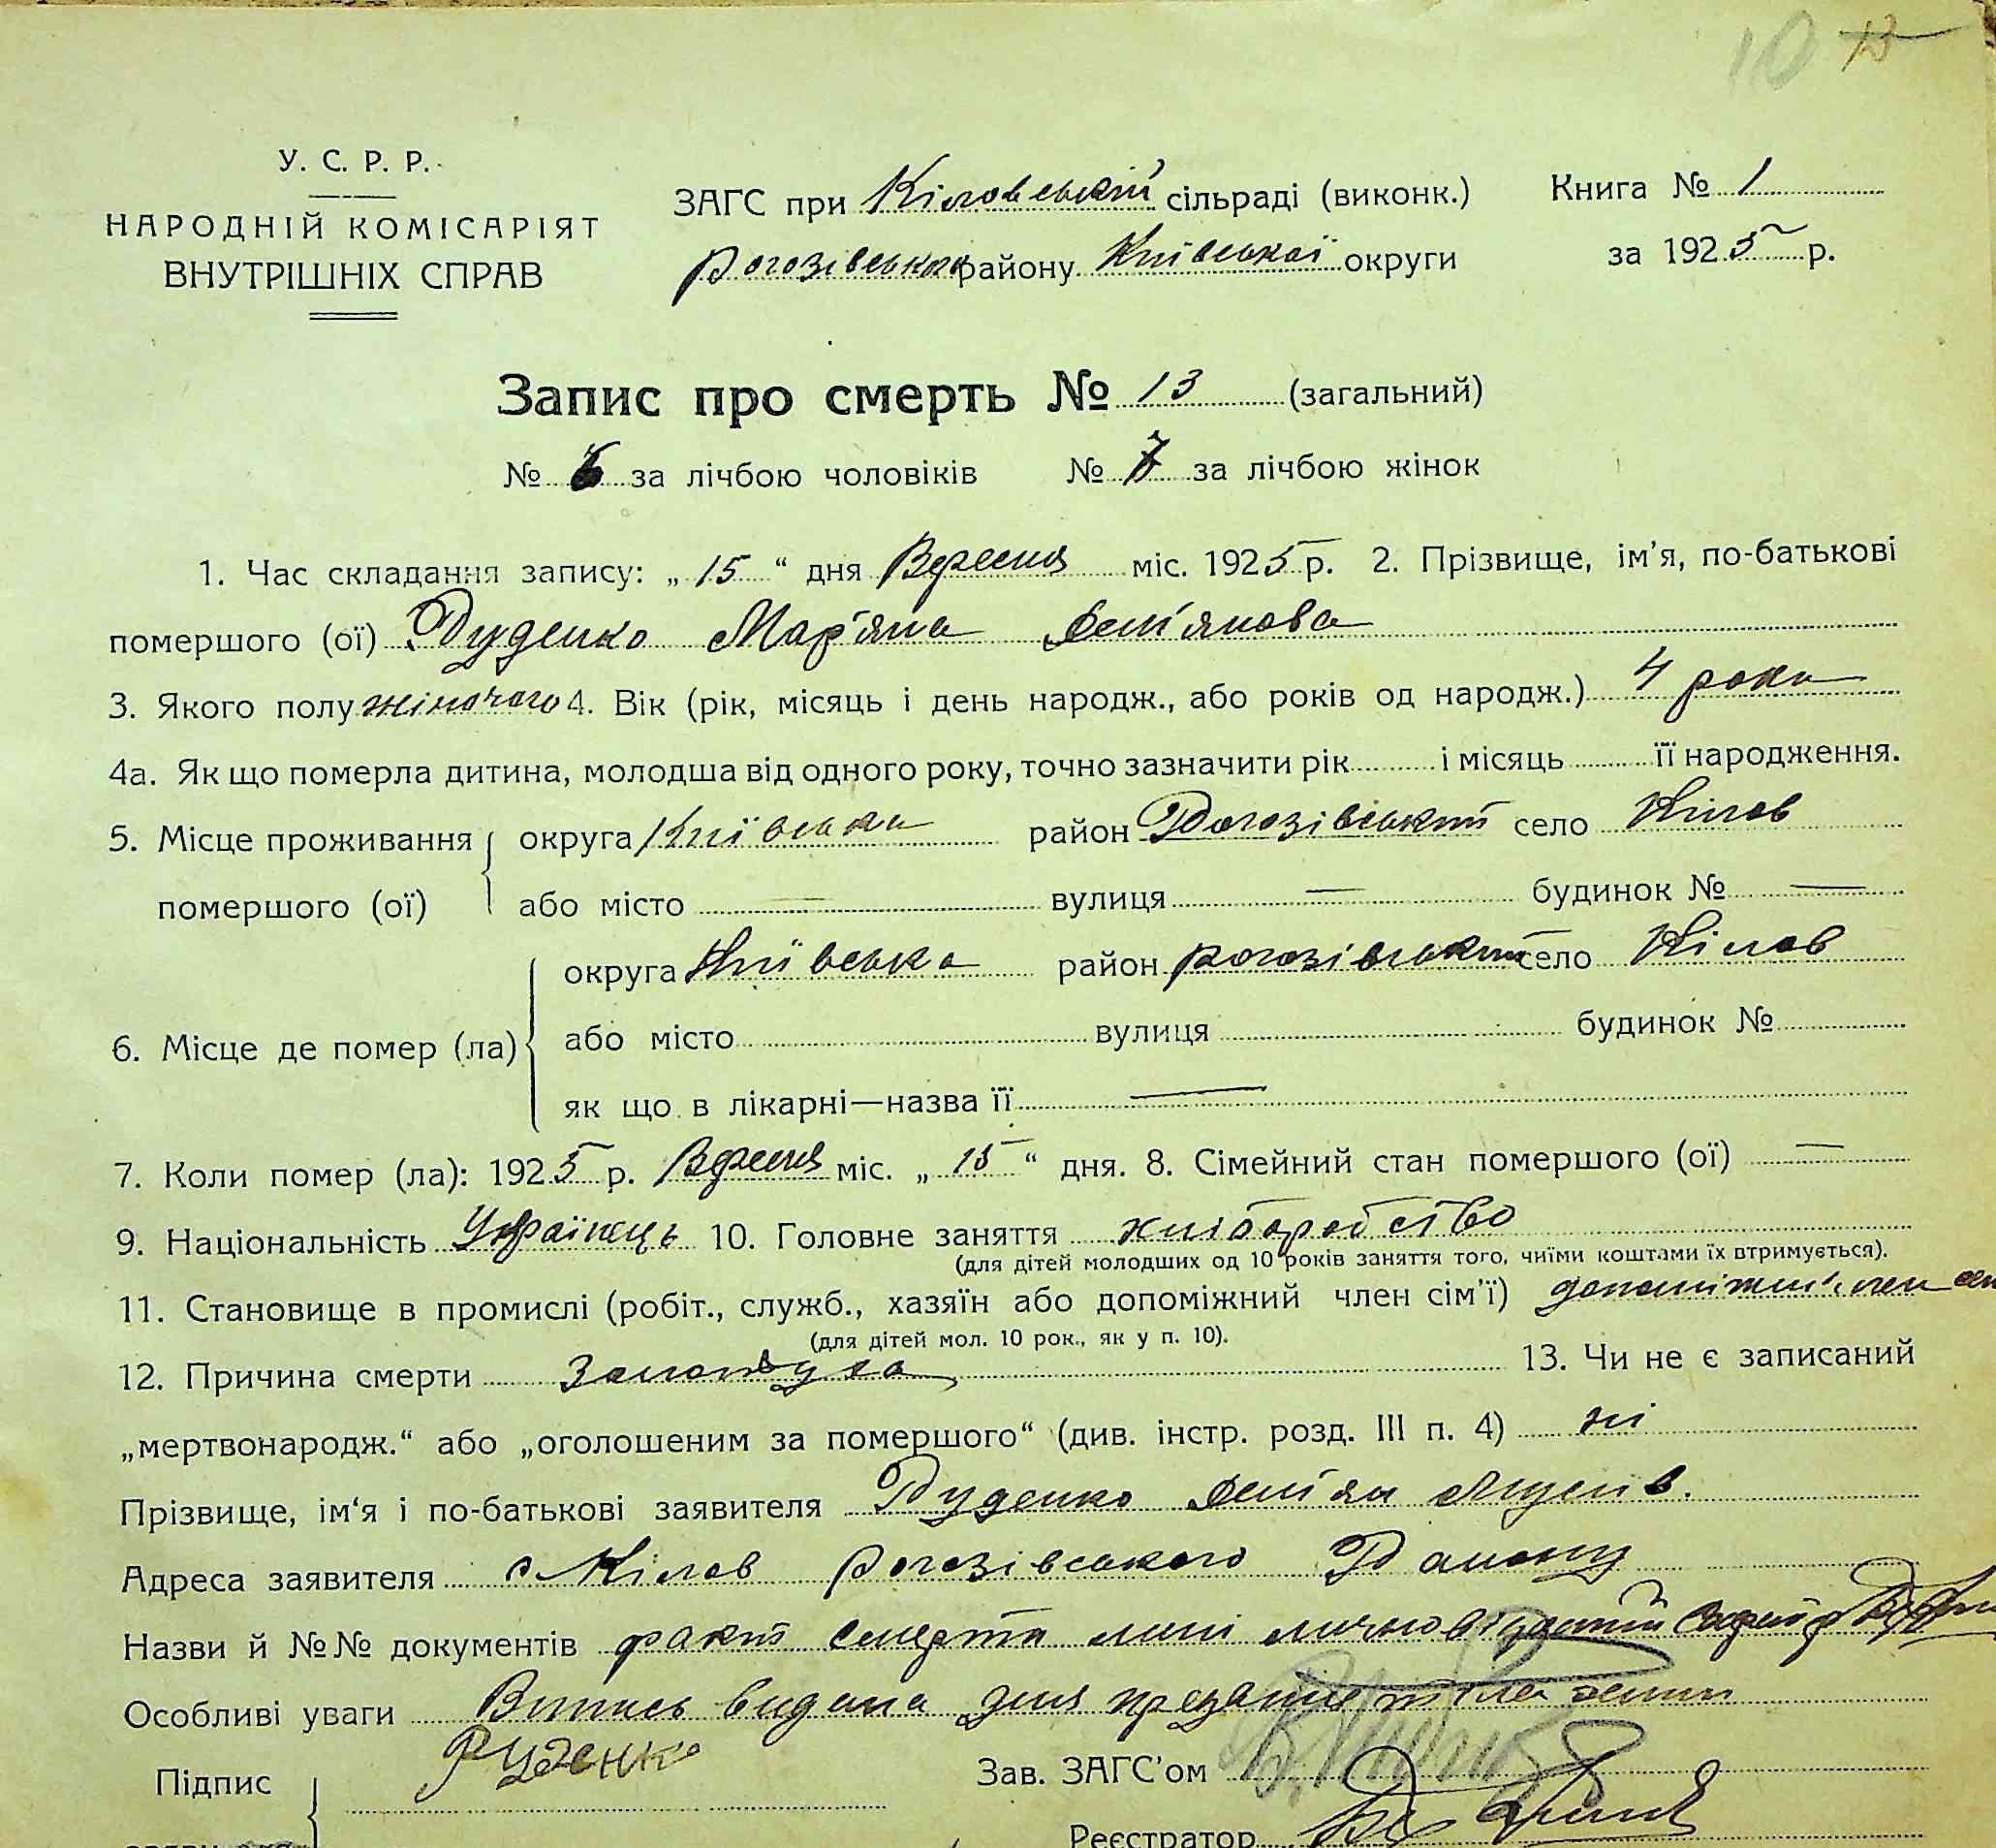 10 13
У. С. Р. Р.
НАРОДНІЙ КОМІСАРІЯТ
ВНУТРІШНІХ СПРАВ
ЗАГС при Кіловській сільраді (виконк.)
Рогозівського району Київської округи
Книга № 1
за 1925 р.
Запис про смерть № 13 (загальний)
№ 6 за лічбою чоловіків № 7 за лічбою жінок
1. Час складання запису: „15“ дня Вересня міс. 1925 р. 2. Прізвище, ім'я, по-батькові
помершого (ої) Руденко Мар'яна Дем'янова
3. Якого полу жіночого 4. Вік (рік, місяць і день народж., або років од народж.) 4 роки
4а. Як що померла дитина, молодша від одного року, точно зазначити рік і місяць її народження.
5. Місце проживання помершого (ої) округа Київська район Рогозівський село Кілов
або місто — вулиця — будинок № —
6. Місце де помер (ла) округа Київська район Рогозівський село Кілов
або місто вулиця будинок №
як що в лікарні—назва її —
7. Коли помер (ла): 1925 р. Вересня міс. „15“ дня. 8. Сімейний стан помершого (ої) —
9. Національність Українець 10. Головне заняття хліборобство
(для дітей молодших од 10 років заняття того, чиїми коштами їх втримується).
11. Становище в промислі (робіт., служб., хазяїн або допоміжний член сім'ї) допоміжн. член
(для дітей мол. 10 рок., як у п. 10).
12. Причина смерти 13. Чи не є записаний
„мертвонародж.“ або „оголошеним за помершого“ (див. інстр. розд. III п. 4) ні
Прізвище, ім'я і по-батькові заявителя Руденко Дем'ян
Адреса заявителя с Кілов Рогозівського Району
Назви й №№ документів факт смерти мені лично
Особливі уваги Випись видана для
Підпис Руденко
Зав. ЗАГС'ом
Реєстратор